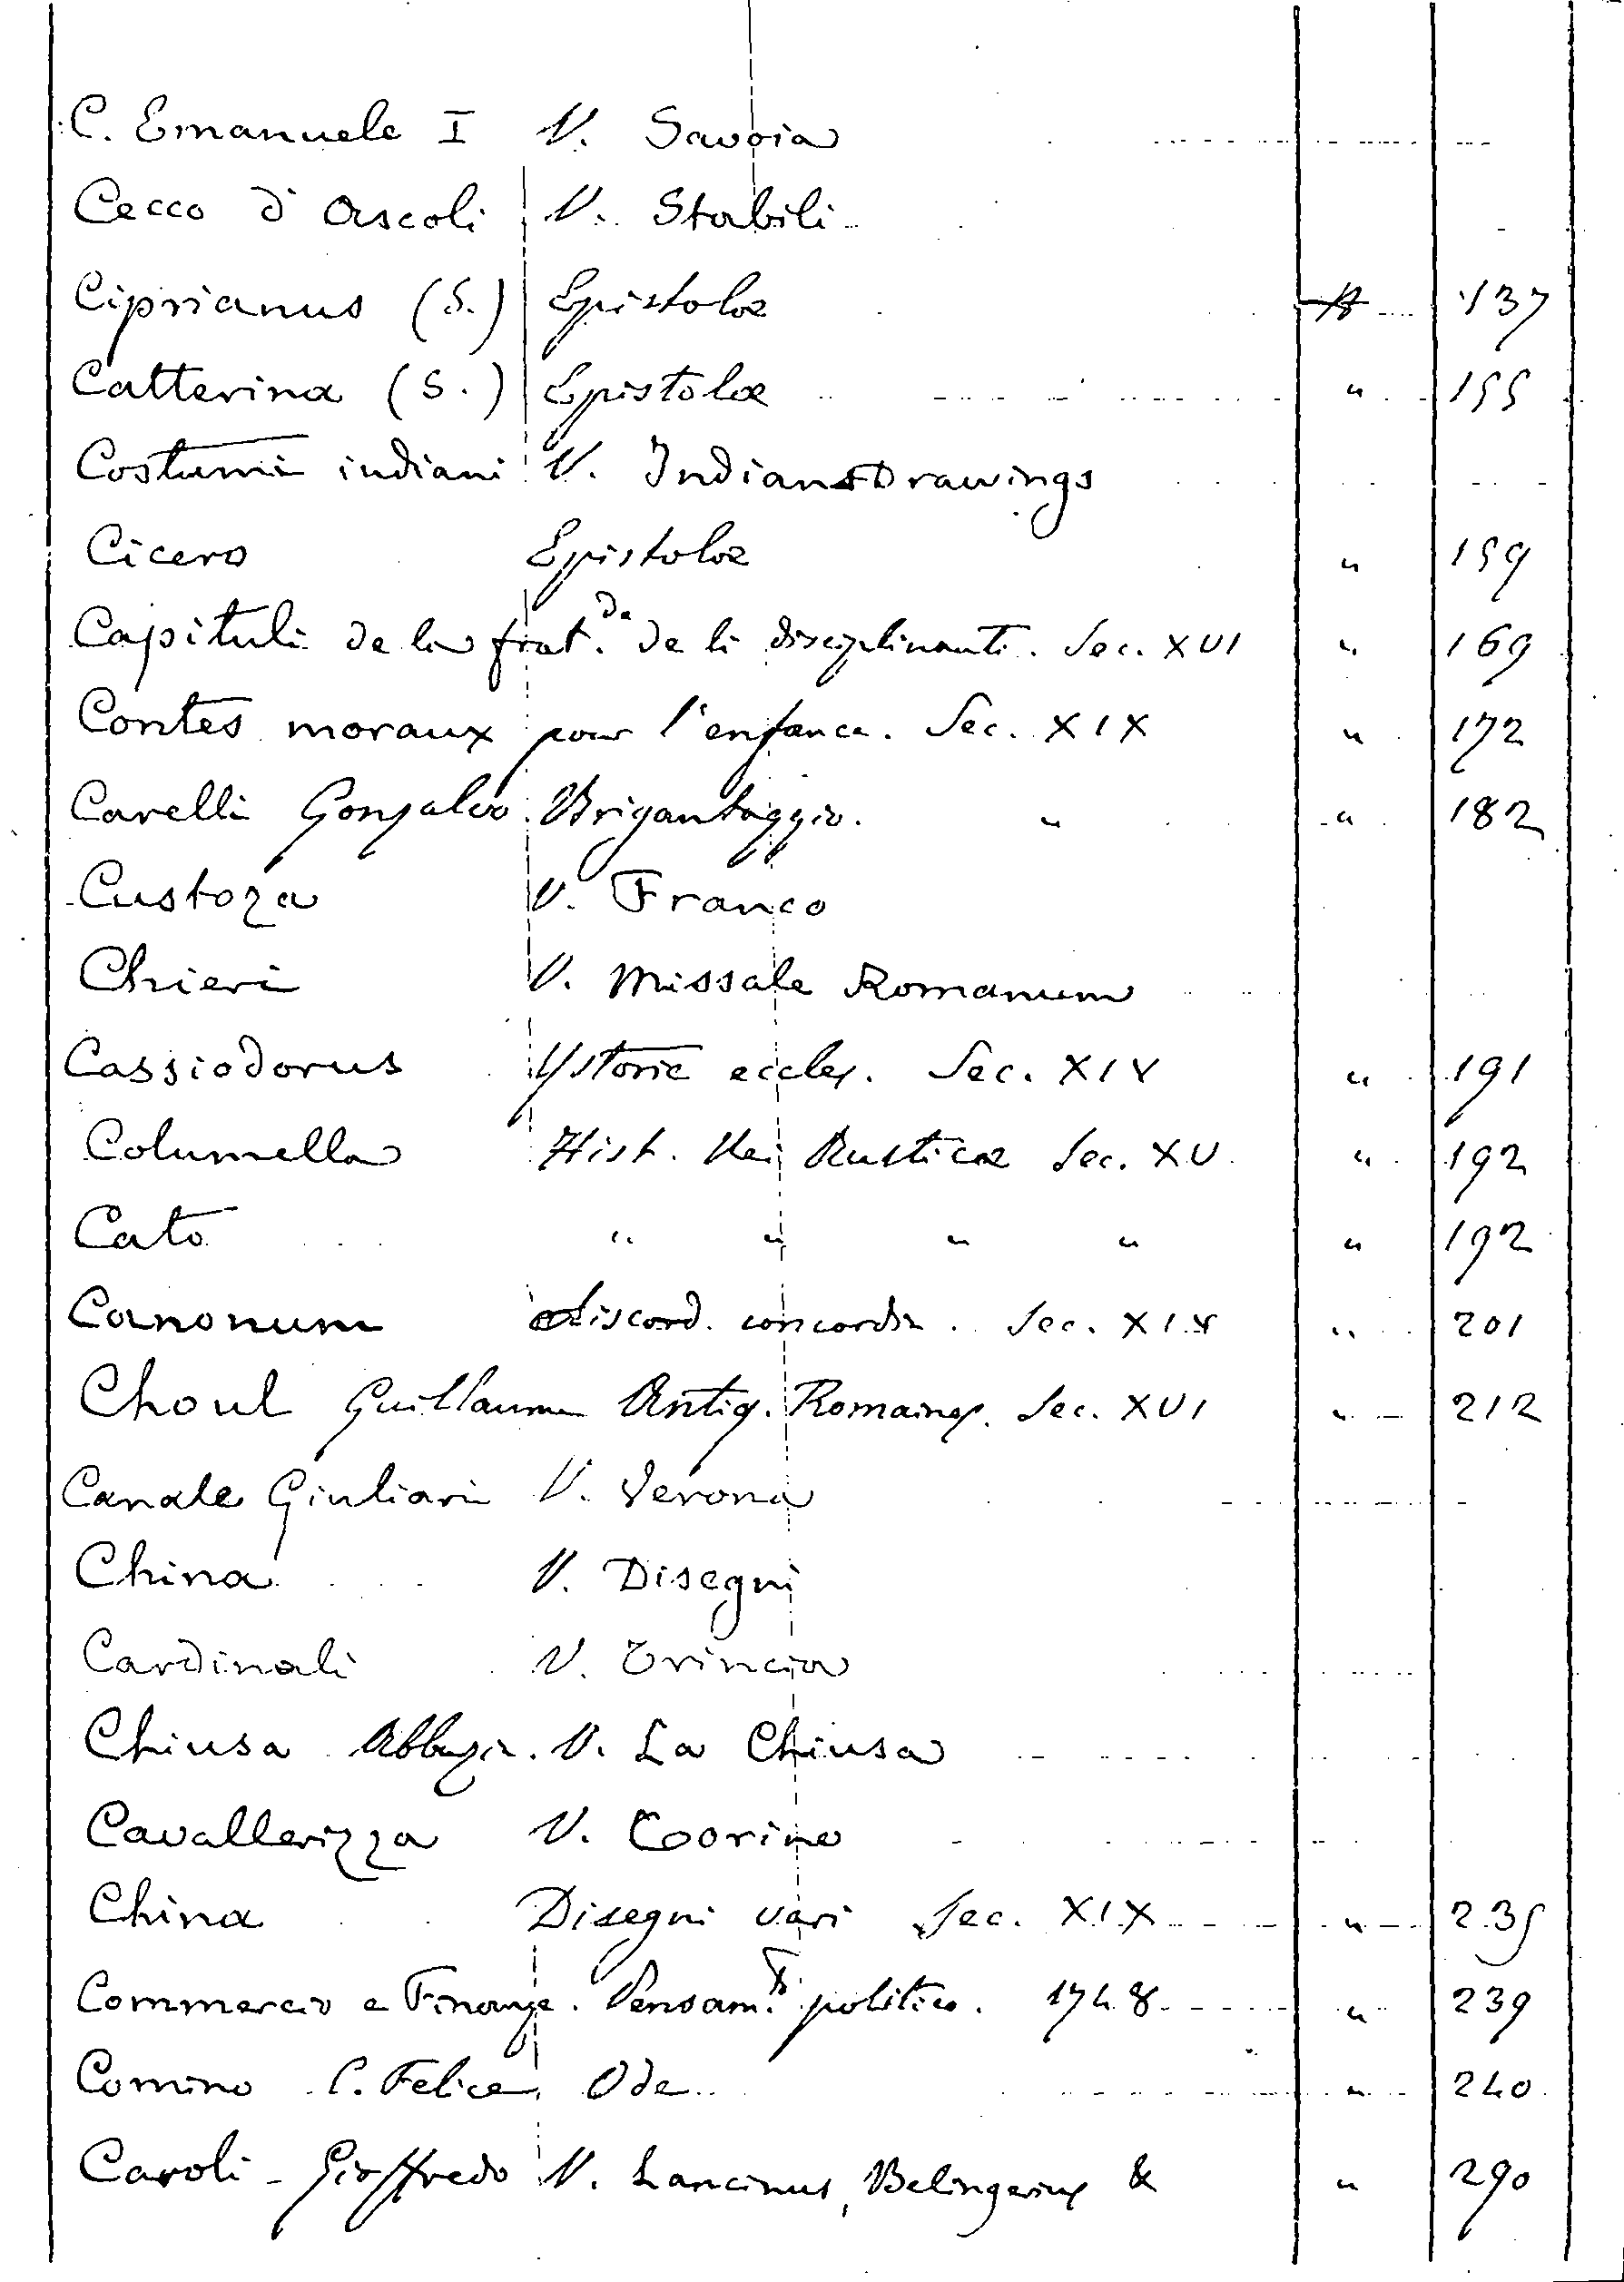 C. Emanuele I V. Savoia
Cecco d'Ascoli V. Stabili
Ciprianus (S.) Epistolæ A 137
Catterina (S.) Epistolæ " 155
Costumi indiani V. Indians Drawings
Cicero Epistolæ " 159
Capituli de la frat.da de li disciplinanti. Sec. XVI " 169
Contes moraux pour l'enfance. Sec. XIX " 172
Carelli Gonzalvo Brigantaggio. " " 182
Custoza V. Franco
Chieri V. Missale Romanum
Cassiodorus Ystorie eccles. Sec. XIV " 191
Columella Hist. Rei Rusticæ Sec. XV " 192
Cato " " " " " 192
Canonum discord. concordia. Sec. XIV " 201
Choul Guillaume Antiq. Romaines. Sec. XVI " 212
Canale Giuliari V. Verona
China V. Disegni
Cardinali V. Trincia
Chiusa Abbazia. V. La Chiusa
Cavallerizza V. Torino
China Disegni vari Sec. XIX " 235
Commercio e Finanze. Pensam.ti politico. 1748 " 239
Comino C. Felice Ode " 240
Caroli - Gioffredo V. Lancinus, Belingerius & " 290